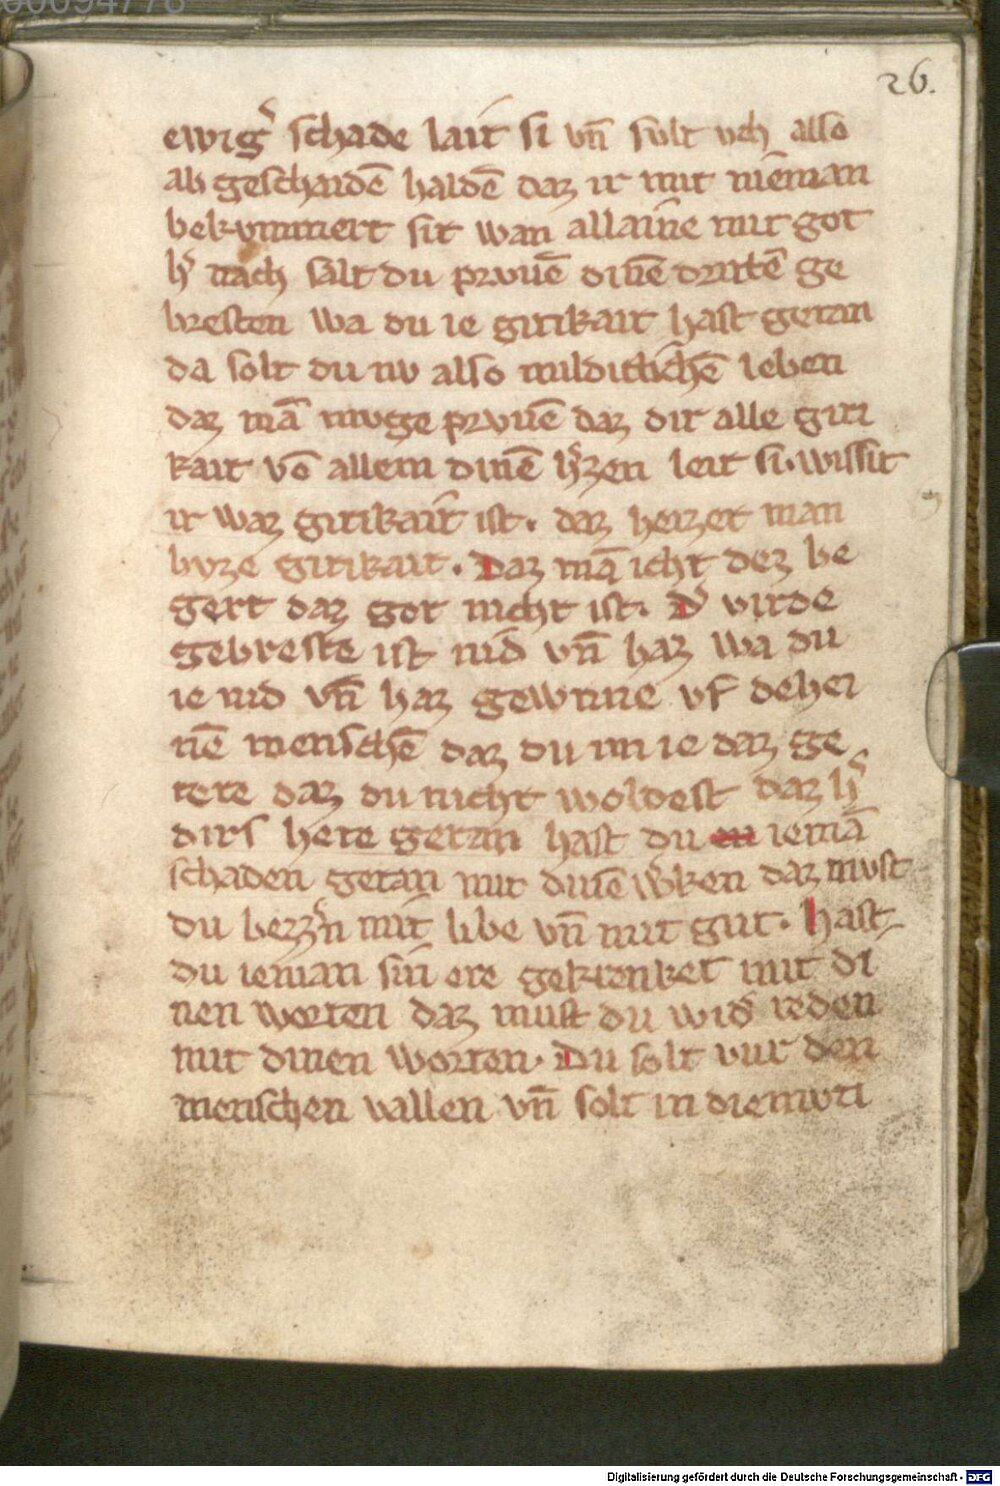 00094778
26.
ewigs̾ schade lait si vn̄ sult vch also
ab geschaidē haldē daz ir mit niēman
bekvmmert sit wan allaīne mit got
hs̾ nach salt du prvuē dinē drittē ge
bresten wa du ie girikait hast getan
da solt du nv also mildiclichē leben
daz mā mvge prvuē daz dir alle giri
kait vō allem dinē hs̾zen leit si. wissit
ir waz girikait ist. daz heizet man
girikait. Daz mā icht dez be
gert daz got nicht ist. Ds̾ virde
gebreste ist nid vn̄ haz wa du
ie nid vn̄ haz gewnne vf dehei
nē menschē daz du im ie daz ge
tete daz du nicht woldest daz hs̾
dirs hete getan hast du iemā
schaden getan mit dinē ws̾ken daz mvst
du bezzs̾n mit libe vn̄ mit gut. Hast
du ieman sin ere gekrenket mit di
nen worten daz must du wids̾ reden
mit dinen worten. Du solt vur den
menschen vallen vn̄ solt in diemvti
Digitalisierung gefördert durch die Deutsche Forschungsgemeinschaft - DFG